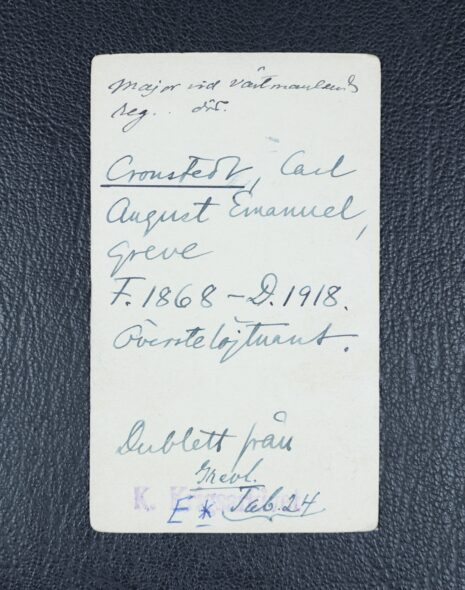 Major vid Västmanlands
reg.
Cronstedt, Carl
August Emanuel,
greve
F. 1868 – D. 1918.
Överstelöjtnant.
Dublett från
Grevl.
K.
E* Tab. 24